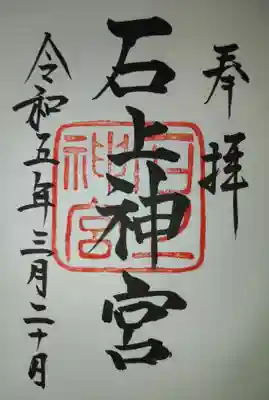 奉拝
石上神宮
石上
神宮
令和五年三月二十月